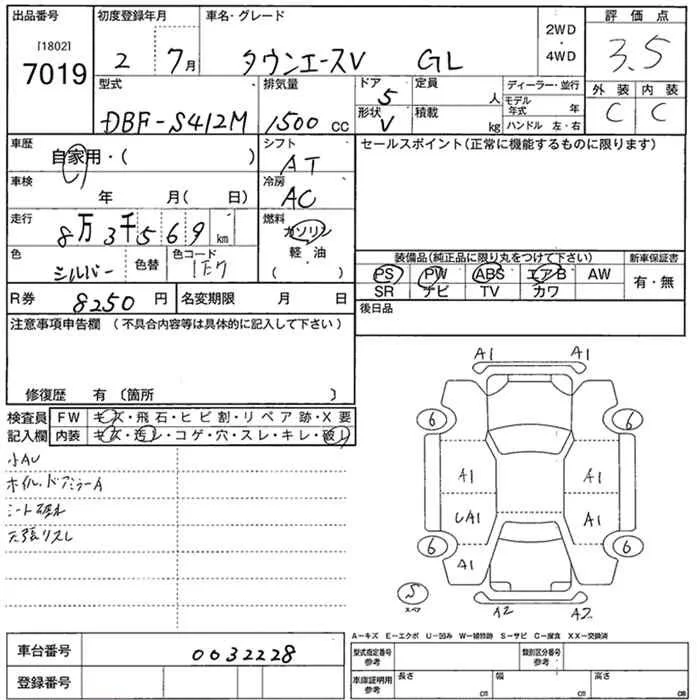 出品番号 初度登録年月 車名・グレード 評価点
[1802] 7019 2 7月 タウンエースV GL 2WD・4WD 3.5
型式 排気量 ドア 定員 ディーラー・並行 外装 内装
DBF-S412M 1500 cc 5 人 モデル年式 年 C C
形状 積載 ハンドル 左・右
V kg
車歴 自家用・( ) シフト AT セールスポイント(正常に機能するものに限ります)
車検 年 月( 日) 冷房 AC
走行 8万3千569km 燃料 ガソリン
軽油
( )
色 シルバー 色替 色コード
装備品(純品に限り丸をつけて下さい) 新車保証書
PS PW ABS エアB AW 有・無
SR ナビ TV カワ
R券 8250円 名変期限 月 日 後日品
注意事項申告欄 (不具合内容等は具体的に記入して下さい)
修復歴 有 〔箇所 〕
検査員 FW キズ・飛石・ヒビ割・リペア跡・X要
記入欄 内装 キズ・汚レ・コゲ・穴・スレ・キレ・破レ
小AU
ホイル、ドアミラーA
シート破れ
天張りスレ
A1 A1
6 6
A1 A1
UA1 A1
6 6
A1
S
スペア
A2 A2
A-キズ E-エクボ U-凹み W-補修跡 S-サビ C-腐食 XX-交換済
車台番号 0032228 型式指定番号 参考 類別区分番号 参考
登録番号 車庫証明用 参考 長さ cm 幅 cm 高さ cm